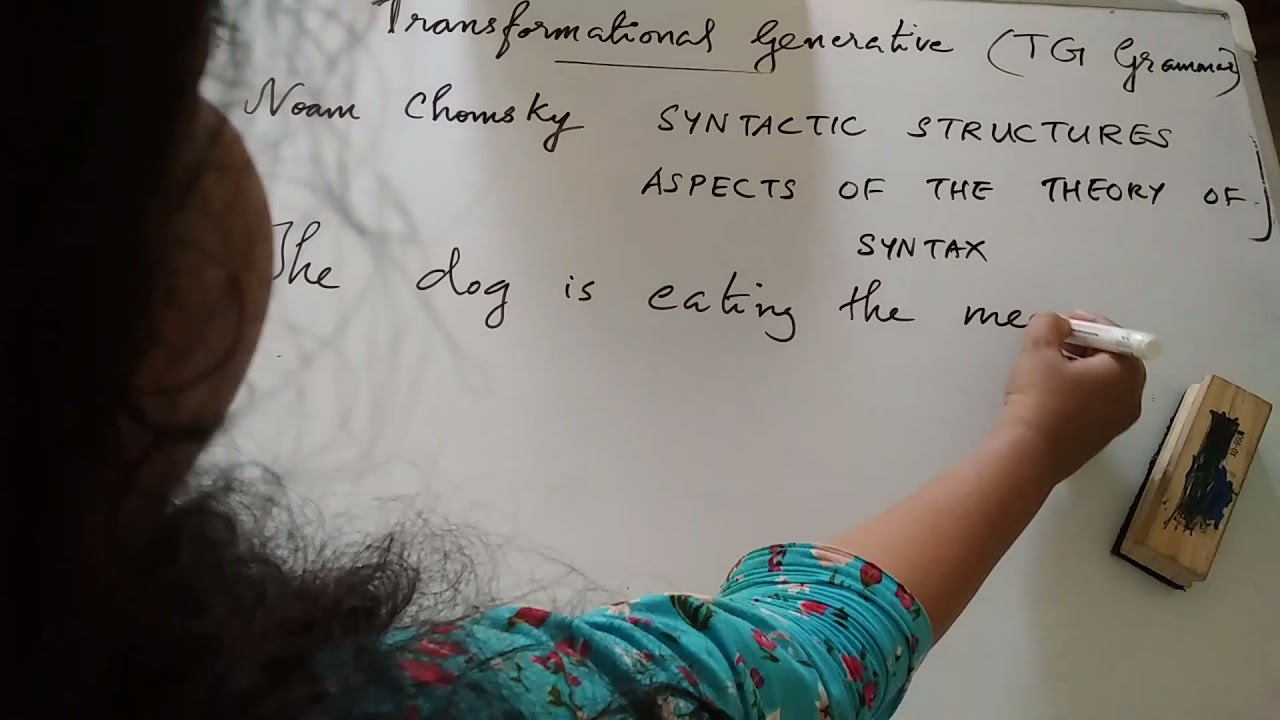 Transformational Generative (TG Grammar)
Noam Chomsky SYNTACTIC STRUCTURES
ASPECTS OF THE THEORY OF
SYNTAX
The dog is eating the me